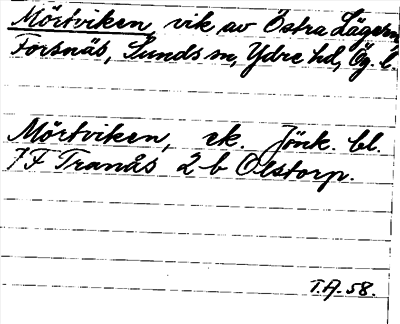 Mörtviken, vik av Östra Lägern
Forsnäs, Sunds sn, Ydre hd, Ög. l.
Mörtviken, ek. Jönk. bl.
7F Tranås 2b Olstorp.
T.A. 58.